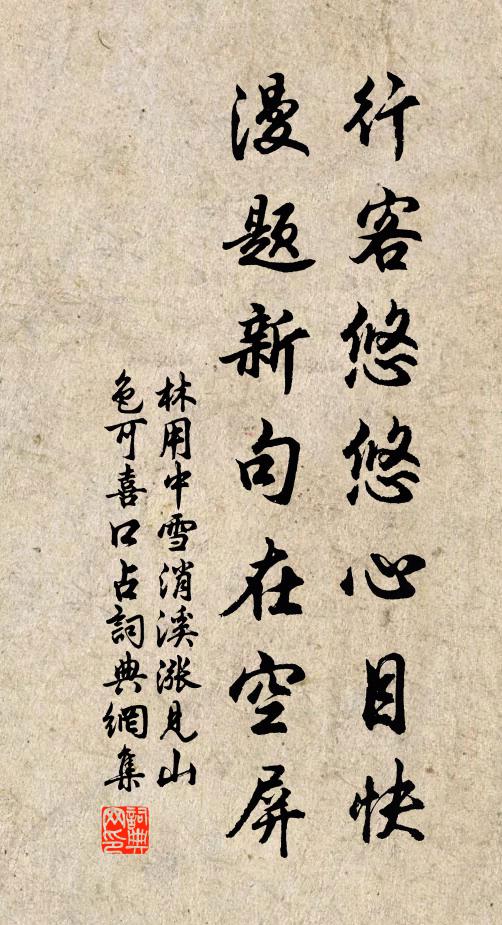 行客悠悠心目快
漫題新句在空屏
林用中雪消溪漲見山
色可喜口占詞典網集
詞典网印